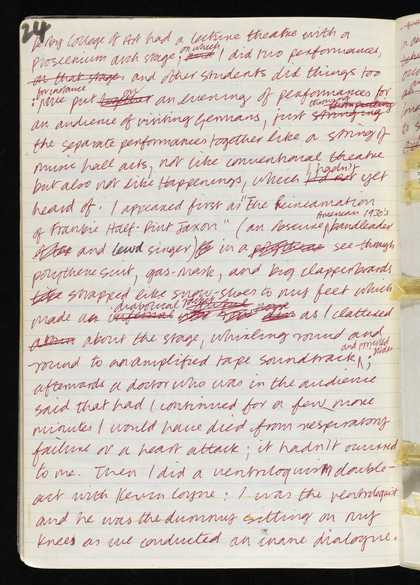 24
Derby College of Art had a lecture theatre with a
proscenium arch stage; on which I did two performances,
and other students did things too
: for instance we put on an evening of performances for
an audience of visiting Germans, just stringing
the separate performances together like a string of
music hall acts, not like conventional theatre
but also not like Happenings, which I hadn't yet
heard of. I appeared first as "The Reincarnation
of Frankie Half-Pint Jaxon" (an obscure American 1930's bandleader
and lewd singer) in a see-through
polythene suit, gas-mask, and big clapperboards
strapped like snow-shoes to my feet which
made a diabolical racket as I clattered
about the stage, whirling round and
round to an amplified tape soundtrack and projected slides;
afterwards a doctor who was in the audience
said that had I continued for a few more
minutes I would have died from respiratory
failure or a heart attack; it hadn't occurred
to me. Then I did a ventriloquism double-
act with Kevin Coyne: I was the ventriloquist
and he was the dummy sitting on my
knees as we conducted an inane dialogue.